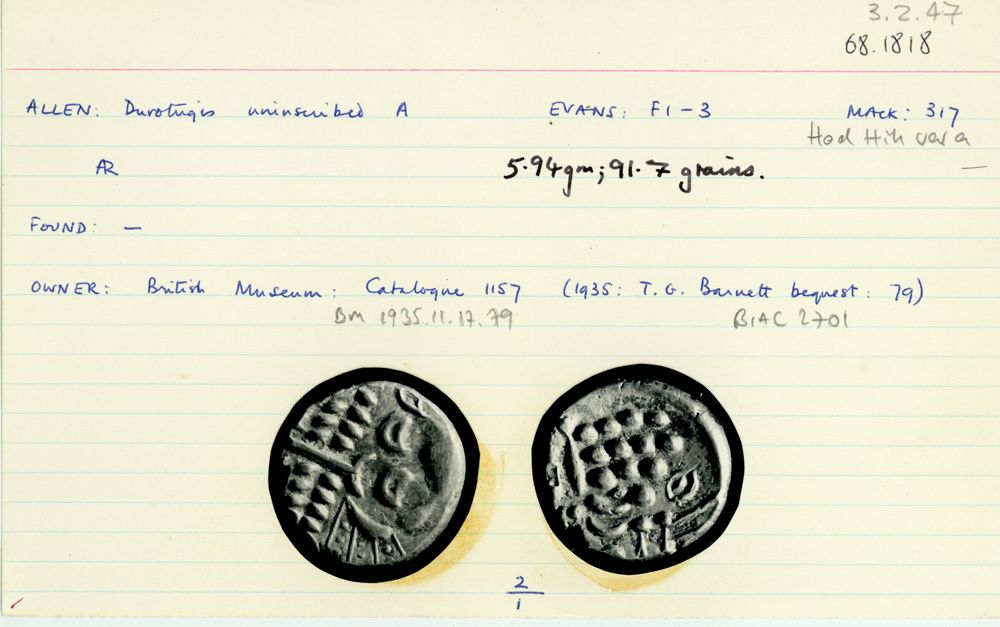 3.2.47
68.1818
ALLEN: Durotrigis uninscribed A EVANS: F1-3 MACK: 317
Hod Hill var a
AR 5.94gm; 91.7 grains. —
FOUND: —
OWNER: British Museum: Catalogue 1157 (1935: T. G. Barnett bequest: 79)
BM 1935.11.17.79 BIAC 2701
2
1